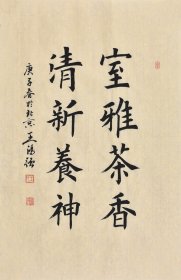 室雅茶香
清新養神
庚子春於北京王鴻儒